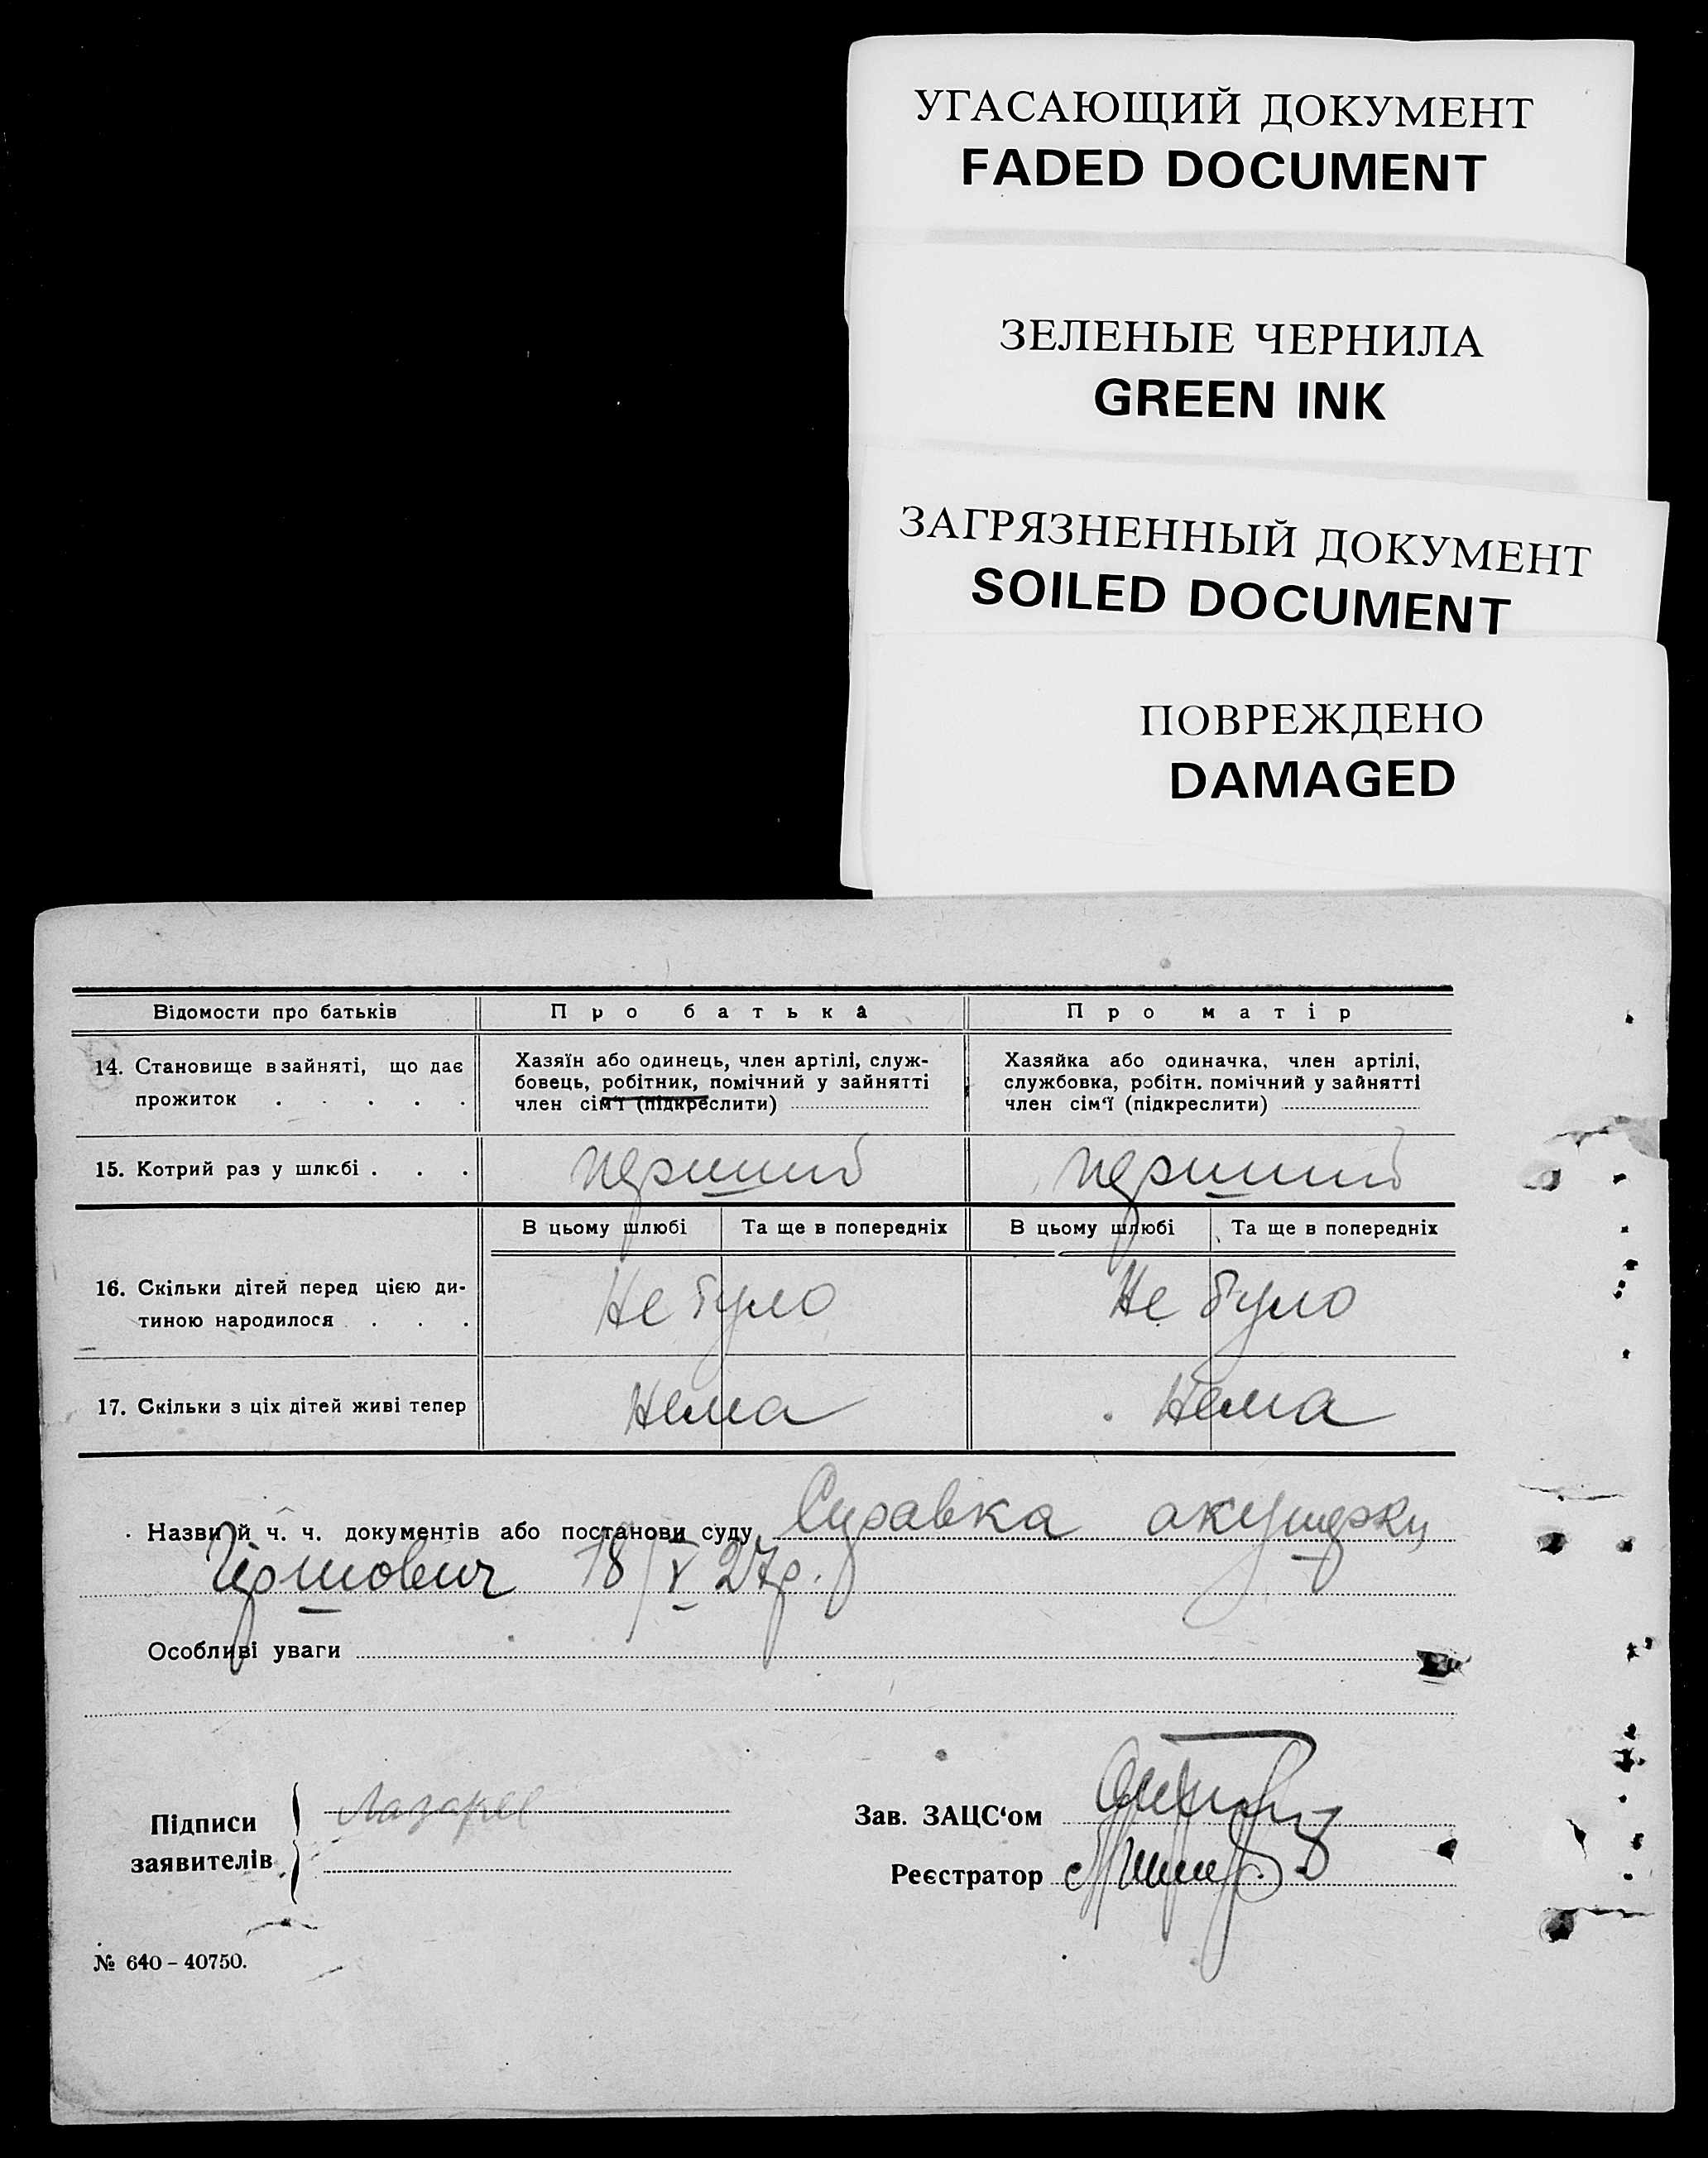 УГАСАЮЩИЙ ДОКУМЕНТ
FADED DOCUMENT
ЗЕЛЕНЫЕ ЧЕРНИЛА
GREEN INK
ЗАГРЯЗНЕННЫЙ ДОКУМЕНТ
SOILED DOCUMENT
ПОВРЕЖДЕНО
DAMAGED
Відомости про батьків Про батька Про матір
14. Становище в зайняті, що дає прожиток . . . . .
Хазяїн або одинець, член артілі, служ-
бовець, робітник, помічний у зайнятті
член сім'ї (підкреслити)
Хазяйка або одиначка, член артілі,
службовка, робітн. помічний у зайнятті
член сім'ї (підкреслити)
15. Котрий раз у шлюбі . . . перший перший
В цьому шлюбі Та ще в попередніх В цьому шлюбі Та ще в попередніх
16. Скільки дітей перед цією ди-
тиною народилося . . . Не було Не було
17. Скільки з ціх дітей живі тепер Нема Нема
Назви й ч. ч. документів або постанови суду Справка акушерки
Гершович 18/V 27р.
Особливі уваги
Підписи
заявителів
Лазарев
Зав. ЗАЦС'ом
Реєстратор
№ 640 – 40750.